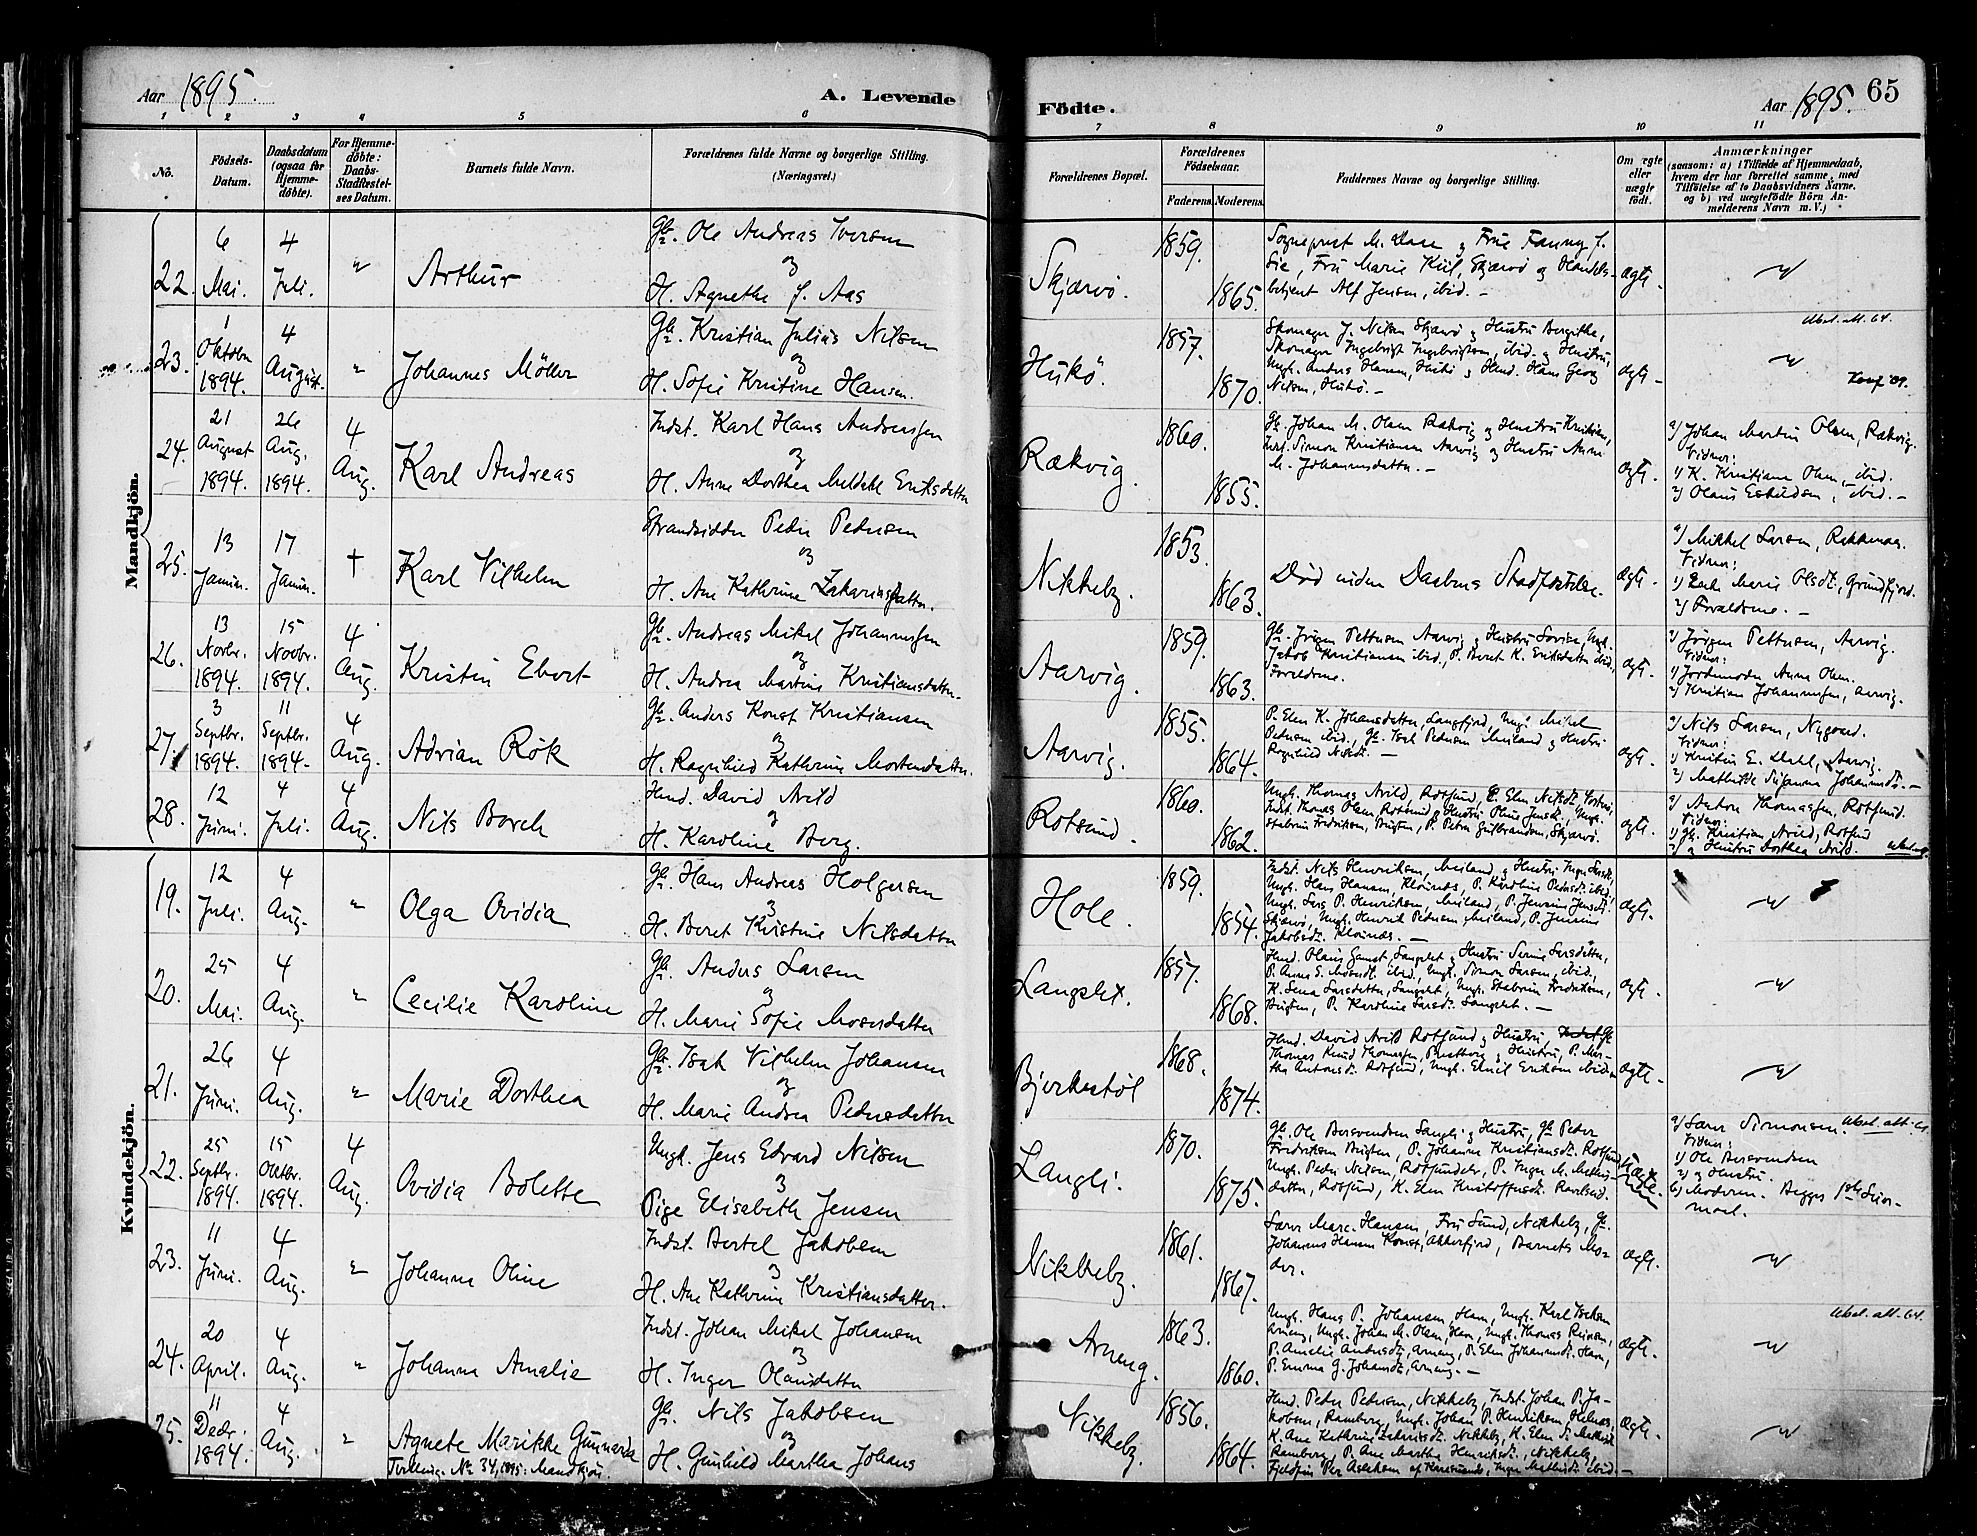 Aar 1895. A. Levende
1 2 3 4 5 6
No. Födsels-Datum. Daabsdatum (ogsaa for Hjemme-döbte). For Hjemme-döbte: Daabs-Stadfæstelses Datum. Barnets fulde Navn. Forældrenes fulde Navne og borgerlige Stilling. (Næringsvei.)
Födte. Aar 1895. 65
7 8 9 10 11
Forældrenes Bopæl. Forældrenes Födselsaar. Faderens. Moderens. Faddernes Navne og borgerlige Stilling. Om ægte eller uægte födt. Anmærkninger
(saasom: a) i Tilfælde af Hjemmedaab,
hvem der har forrettet samme, med
Tilföielse af to Daabsvidners Navne.
og b) ved uægtefödte Börn An-
melderens Navn m. V.)
Mandkjön.
22. 6 Mai. 4 Juli. " Arthur Gbr. Ole Andreas Iversen
og
H. Agnethe f. Aas
Skjærvö. 1859. 1865. Sogneprest M. & Frue Fanny f.
Lie, Fru Marie Kiil, Skjærvö og Handels-
betjent Alf Jensen, ibid. -
ægte.
23. 1 Oktober 1894. 4 August. " Johannes Möller Gbr. Kristian Julius Nilsen
og
H. Sofie Kristine Hansen.
Hukö. 1857. 1870. Skomager J. Nilsen Skjærvö & Hustru Bergitha,
Skomager Ingebrigt Ingebrigtsen, ibid. & Hustru,
Ungk. Anders Hansen, & Hans Georg
Nilsen, Hukö. -
ægte -
24. 21 August 1894. 26 Aug. 1894. 4 Aug. Karl Andreas Indst. Karl Hans Andreassen
og
H. Anne Dorthea Meldahl Eriksdatter
Rækvig. 1860. 1855. Gbr. Johan M. Olsen Rækvig og Hustru Kristine,
Indst. Simon Kristiansen Aarvig og Hustru Anne
M. Johannesdatter. -
ægte. a) Johan Martin Olsen, Rækvig.
Vidner:
1) K. Kristiane Olsen, ibid.
2) Olaus Eskildsen, ibid. -
25. 13 Januar. 17 Januar. † Karl Vilhelm Strandsidder Peder Pedersen
og
H. Ane Kathrine Zakariasdatter.
Nikkeby. 1853. 1863. Död inden Daabens Stadfæstelse. ægte. a) Mikkel Larsen,
Vidner:
1) Marie Olsdt., Grundfjord.
2) Forældrene. -
26. 13 Novbr. 1894. 15 Novbr. 1894. 4 Aug. Kristin Ebert Gbr. Andreas Mikal Johannessen
og
H. Andrea Martine Kristiansdatter.
Aarvig. 1859. 1863. Gbr. Jörgen Pettersen Aarvig & Hustru Lovise, Ungk.
Jakob Kristiansen ibid., P. Beret K. Eriksdatter ibid.,
Forældrene.
ægte. a) Jörgen Pettersen, Aarvig.
Vidner:
1) Jordemoder Anne Olsen.
2) Kristian Johannessen, Aarvig.
27. 3 Septbr. 1894. 11 Septbr. 1894. 4 Aug. Adrian Rök Gbr. Anders Konst Kristiansen
og
H. Ragnhild Kathrine Mortensdatter.
Aarvig. 1855. 1864. P. Elen K. Johansdatter, Langfjord, Ungk. Mikal
Pedersen ibid., Gbr. Isak Pedersen Meiland & Hustru
Ragnhild
ægte. a) Nils Larsen, Nygaard.
Vidner:
1) Kristin E. Dahl, Aarvig.
2) Mathilde Susanna Johannesdt. -
28. 12 Juni. 4 Juli. 4 Aug. Nils Borch Hmd. David Arild
og
H. Karoline Berg.
Rotsund. 1860. 1862. Ungk. Thomas Arild, Rotsund, P. Elen Nilsdt.,
Indst. Thomas Olsen Rotsund & Hustru Jensdt., Ungk.
Fredriksen, Bugten, P. Petra Gulbrandsen, Skjærvö.
ægte. a) Anton Thomassen, Rotsund.
Vidner:
1) Gbr. Kristian Arild, Rotsund
2) og Hustru Dorthea Arild.
Kvindekjön.
19. 12 Juli. 4 Aug. " Olga Ovidia Gbr. Hans Andreas Holgersen
og
H. Beret Kristine Nilsdatter
Hole. 1859. 1854. Indst. Nils Henriksen, Meiland, & Hustru Inger
Ungk. Hans Hansen, P. Karoline Pedersdt. ibid.,
Ungk. Lars P. Henriksen, Meiland, P. Jensine Jensdt.
Skjærvö, Ungk. Henrik Pedersen Meiland, P. Jensine
Jakobsdt. -
ægte.
20. 25 Mai. 4 Aug. " Cecilie Karoline Gbr. Anders Larsen
og
H. Marie Sofie Mosesdatter
Langslet. 1857. 1868. Hmd. Olaus Langslet & Hustru Larsdatter,
P. Anne E. ibid., Ungk. Simon Larsen, ibid.,
K. Lena Larsdatter, Langslet, Ungk. Fredriksen,
Bugten, P. Karoline Larsdt. Langslet. -
ægte.
21. 26 Juni. 4 Aug. " Marie Dorthea Gbr. Isak Vilhelm Johansen
og
H. Marie Andrea Pedersdatter
Bjerkestöl 1868. 1874. Hmd. David Arild Rotsund & Hustru,
Thomas Knud Thomassen, & Hustru, P. Mar-
tha Antonsdt. Rotsund, Ungk. Emil Eriksen ibidem
ægte.
22. 25 Septbr. 1894. 15 Oktbr. 1894. 4 Aug. Ovidia Bolette Ungk. Jens Edvard Nilsen
og
Pige Elisabeth Jensen
Langli. 1870. 1875. Gbr. Ole Bersvendsen Langli & Hustru, Gbr. Peder
Fredriksen Bugten, P. Johanne Kristiansdt. Rotsund,
Ungk. Peder Nilsen, Rotsundelv, P. Inger M.
datter, Rotsund, K. Elen Kristoffersdt.
Uægte. a) Lærer Simonsen.
Vidner:
1) Ole Bersvendsen
2) & Hustru.
b) Moderen. Begges 1ste Leier-
maal.
23. 11 Juni. 4 Aug. " Johanna Oline Indst. Bertel Jakobsen
og
H. Ane Kathrine Kristiansdatter.
Nikkeby. 1861. 1867. Lærer Marc. Hansen, Fru Lund, Nikkeby, Gbr.
Johannes Hansen Konst, Akkerfjord, Barnets Mo-
der.
ægte.
24. 20 April. 4 Aug. " Johanna Amalie Indst. Johan Mikal Johansen
og
H. Inger Olausdatter
Arneng. 1863. 1860. Ungk. Hans P. Johansen, Havn, Ungk. Karl Isaksen
Arneng, Ungk. Johan M. Olsen, Havn, Ungk. Thomas
P. Amalie Andersdt., Arneng, P. Elen Johannesdt. Havn,
P. Emma G. Johansdt., Arneng. -
ægte.
25. 11 Decbr. 1894. 4 Aug. " Agnete Marikke Gunnarda
Tvilling. No. 34, 1895: Mandkjön.
Gbr. Nils Jakobsen
og
H. Gunhild Martha Johans
Nikkeby. 1856. 1864. Hmd. Peder Pedersen, Nikkeby, Indst. Johan P. Ja-
kobsen, Ramberg, Ungk. Johan P. Henriksen Helnæs,
K. Ane Kathrine Zakariasdt. Nikkeby, K. Elen
Ramberg, P. Ane Martha Henriksdt., Nikkeby,
Per Aslaksen af Karesuando, Inger ibid. -
ægte.